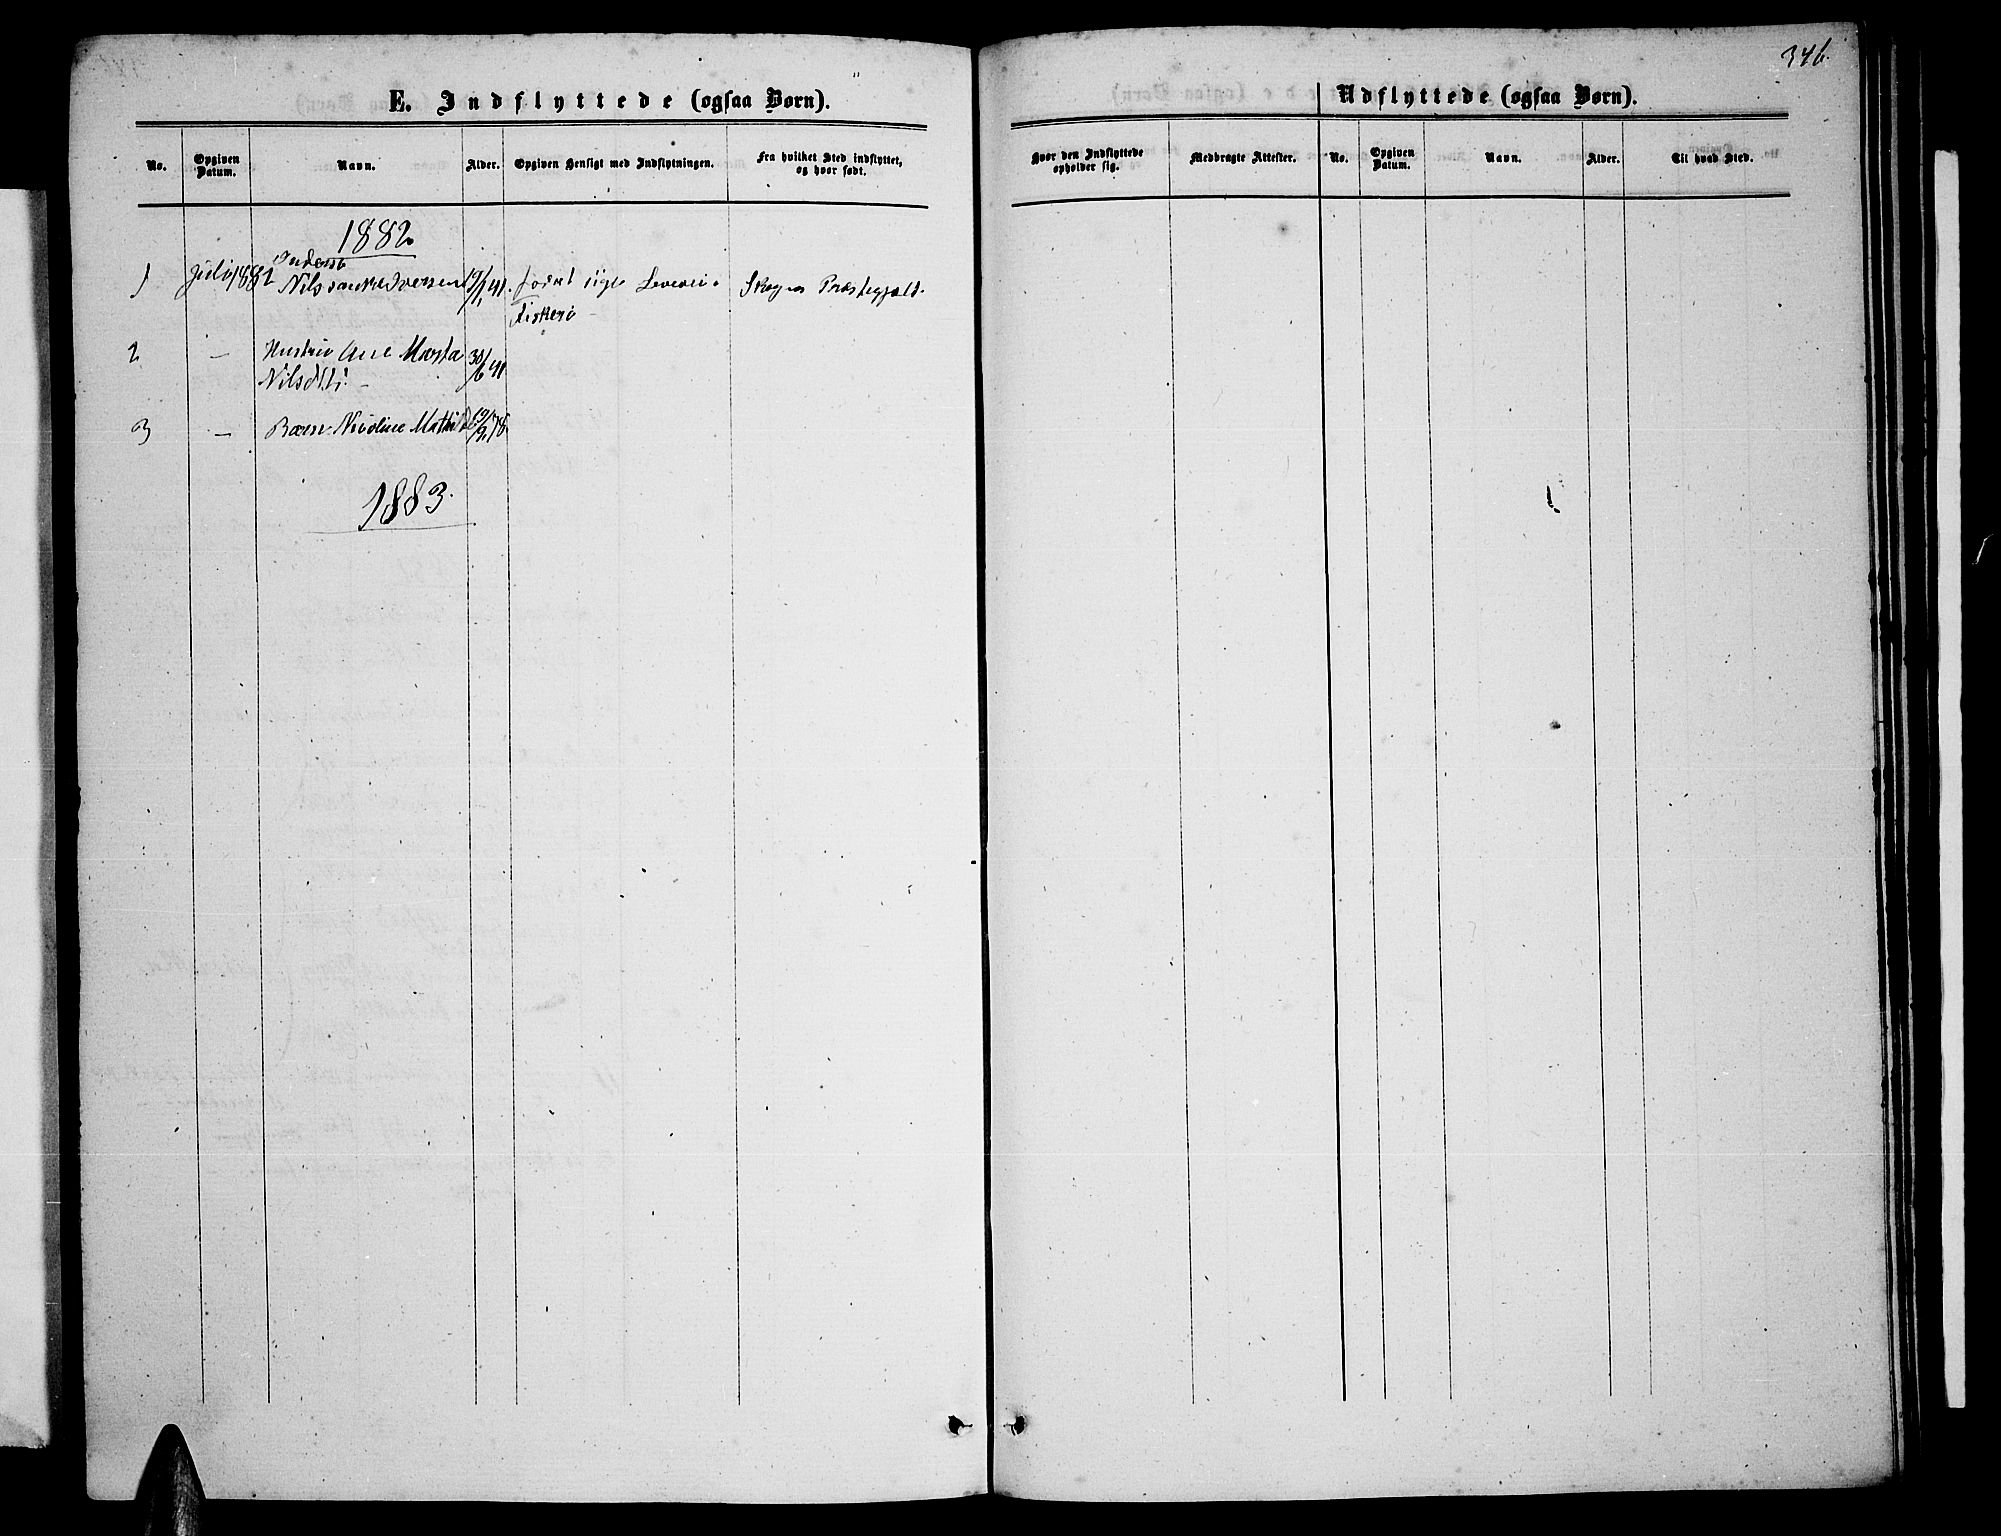 346.
E. Indflyttede (ogsaa Børn).
No. Opgiven Datum. Navn. Alder. Opgiven Hensigt med Indflytningen. Fra hvilket Sted indflyttet, og hvor født.
1882.
Inderst
1 Juli 1882 Nils Iversen 19/1 41. for at søge Levevei i Skogns Præstegjæld.
Fiskeri –
2 – Hustru Ane Marta 30/6 41
Nilsdtr. –
3 – Barn Nicoline Mathilde 19/9 78.
1883.
Udflyttede (ogsaa Børn).
Hvor den Indflyttede opholder sig. Medbragte Attester. No. Opgiven Datum. Navn. Alder. Til hvad Sted.